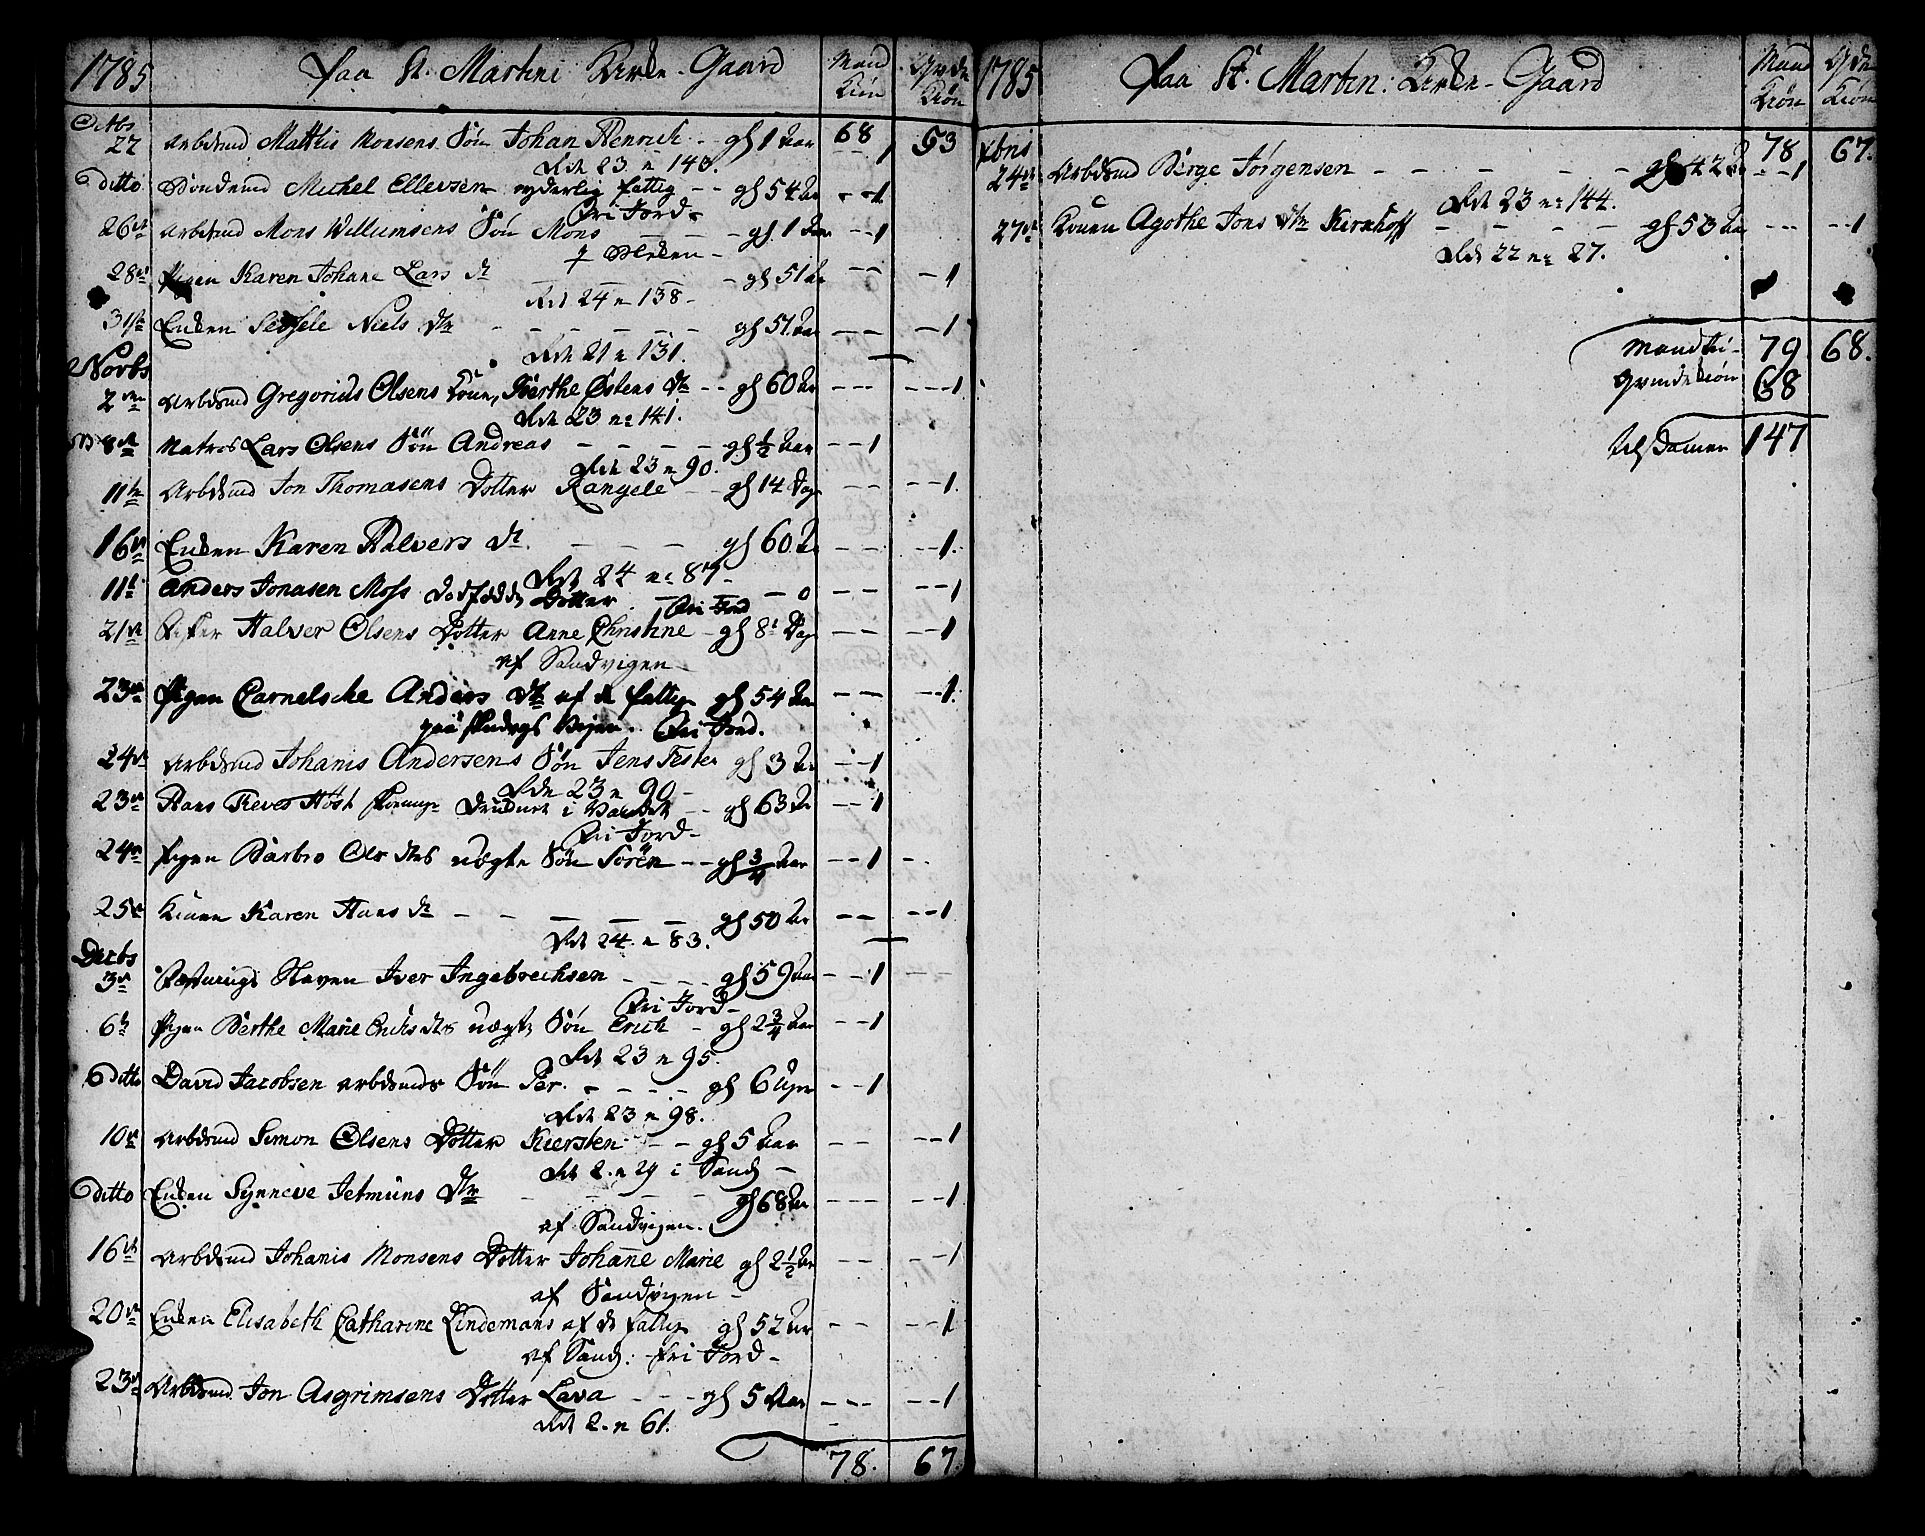 1785 Paa St. Martini Kirke-Gaard Mand Kiøn Qvinde Kiøn
Octbr
22 Arbdsmd Mathis Monsens Søn Johan Henrich - gl 1 Aar 68 1 53
Rde 23 n 140.
Ditto Bondemd Michel Ellevsen - fattig - - gl 54 Aar - - 1
Fri Jord -
26de Arbdsmd Mons Willumsens Søn Mons - gl 1 Aar - - 1
28de Pigen Karen Johane Lars dr - gl 51 Aar - - - - 1
Rde 24 n 138 -
31te Enken Sidsele Niels dtr - - - - - gl 51 Aar - - - - 1
Rde 21 n 131.
Novbr
2den Arbdsmd Gregorius Olsens Kone, Berthe Østens Dtr - - gl 60 Aar - - - - - 1
Rde 23 n: 141.
8de Matros Lars Olsens Søn Andreas - - - - gl 1/2 Aar - - 1
Rde 23 n 90.
11te Arbdsmd Jon Thomasens Dotter Rangele - - gl 14 Dage - - - - 1.
16de Enken Karen Halvers dr. - - - gl 60 Aar - - - - 1.
Rde 24 n: 87 -
11t Anders Jonasen Moss dødfødde Dotter - - 0 - - - - 1
Fri Jord
21de Halver Olsens Dotter Anne Christine - gl 8t Dage - - - - 1
af Sandvigen
23de Pigen Carnelsche Anders dtr af de fattige gl 54 Aar - - - - 1.
Fri Jord.
24de Arbdsmd Johanis Andersens Søn Jens Fester gl 3 Aar - - 1
Rde 23 n 90 -
23de Hans Høst druknet i Vandet - - gl 63 Aar - - 1
Fri Jord -
24de Pigen Barbro Ols dtrs uægte Søn Sören - - gl 3/4 Aar - - 1 -
25de Konen Karen Hans dr - - - - - gl 50 Aar - - - - 1
Rde 24. n 83.
Decbr
3de Slaven Iver Ingebrechsen - - - - gl 59 Aar - - 1
Fri Jord -
6te Pigen Berthe Marie Erichs dtrs uægte Søn Erich - gl 2 3/4 Aar - - 1
Rde 23 n 95.
Ditto David Jacobsen Arbdsmds Søn Per. - - - - gl 6 Uger - - 1
Rde 23 n 98.
10de Arbdsmd Simon Olsens Dotter Kiersten - - gl 5 Aar - - - - 1
Rde 2. n 29 i Sandv -
Ditto Enken Synneve Jetmuns Dtr - - - - gl 68 Aar - - - - - 1
af Sandvigen.
16de Arbdsmd Johanis Monsens Dotter Johane Marie gl 2 1/2 Aar - - - - 1
af Sandvigen -
20de Enken Elisabeth Catharine Lindemans af de fattige gl 52 Aar - - - - 1
af Sandv: Fri Jord -
23de Arbdsmd Jon Asgrimsens Dotter Lava - - - gl 5 Aar - - - - - 1
Rde 2. n 61.
78. 67
1785 Paa St. Martin: Kirke-Gaard Mand Kiøn Qvde Kiøn
Xbris 78 67.
24de Arbdsmd Birge Jørgensen - - - - - gl 42 Aar - - 1
Rde 23 n: 144.
27de Konen Agothe Jons dtr Kirkhoff - - - - gl 53 Aar - - - - - 1
Rde 22 n: 27.
Mandki - 79 68.
Qvindekiøn 68
Tilsamen 147